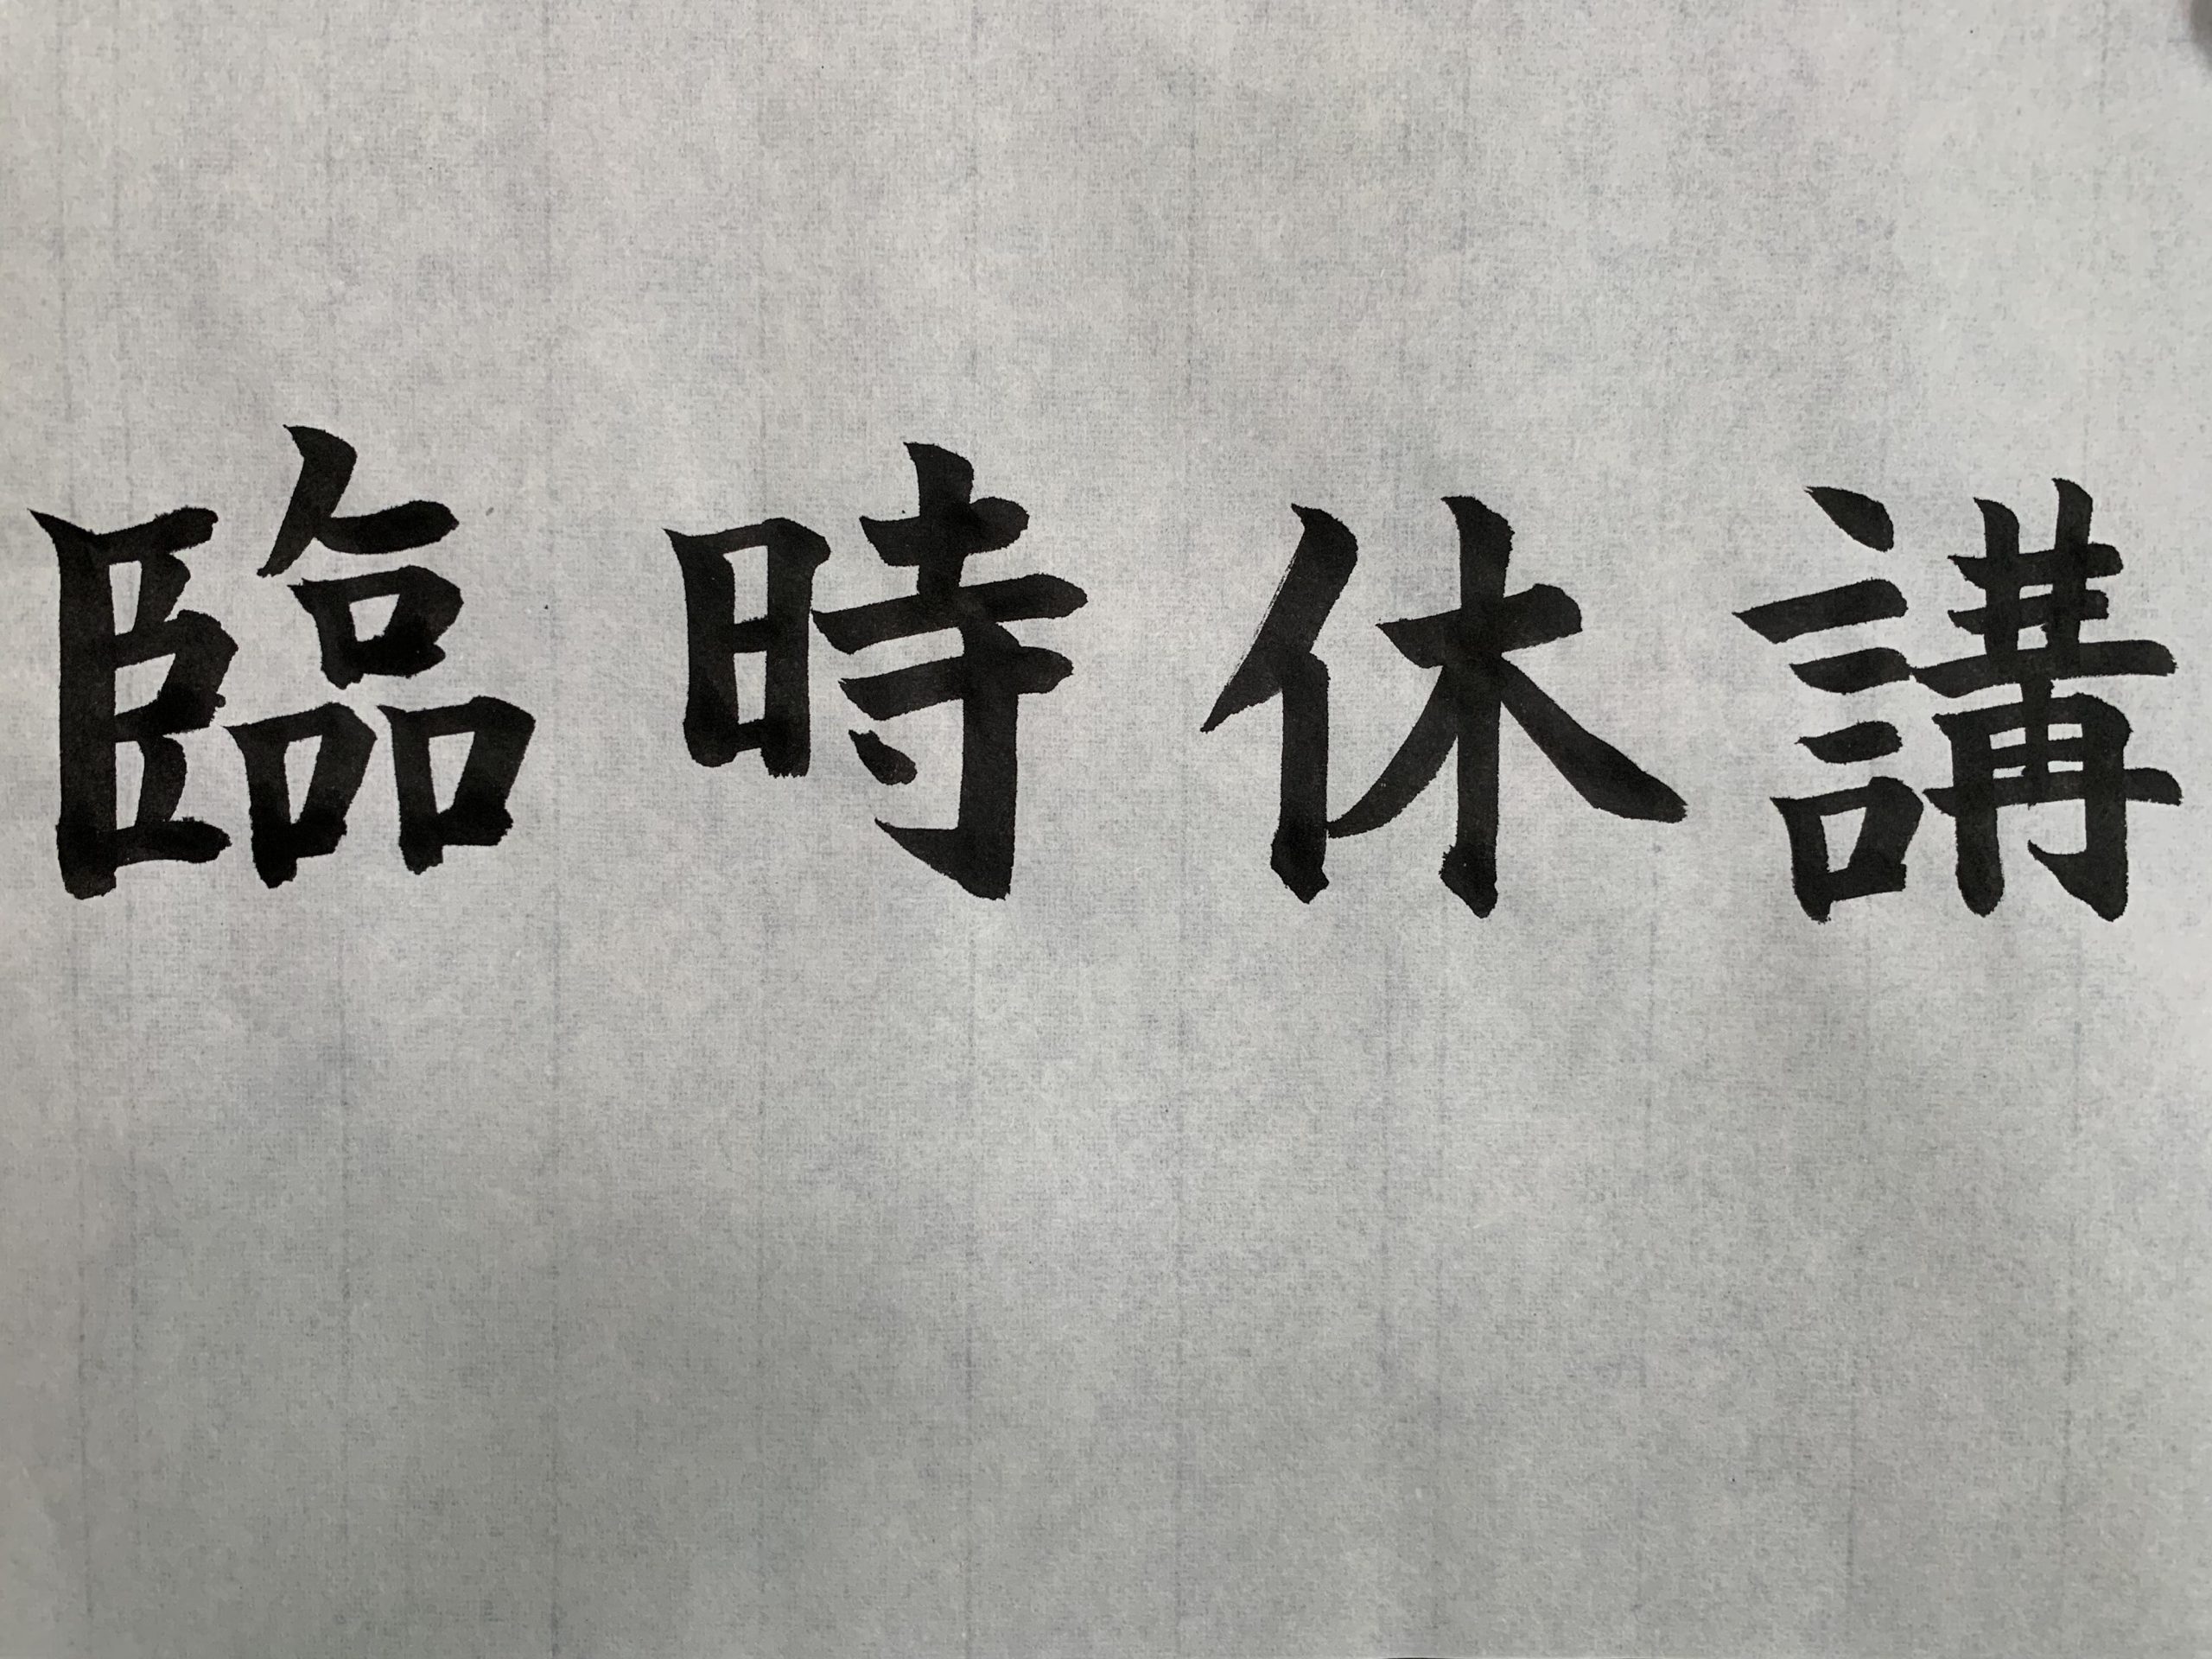 臨時休講